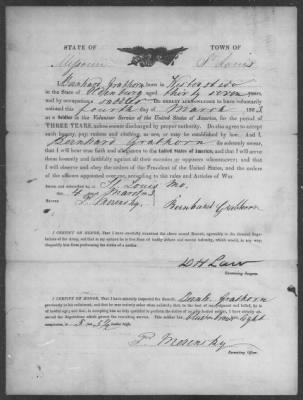 STATE OF TOWN OF
Missouri St Louis
I, Bernhard Grathorn born in
in the State of aged thirty seven years,
and by occupation a DO HEREBY ACKNOWLEDGE to have voluntarily
enlisted this fourth day of March 1863
as a Soldier in the Volunteer Service of the United States of America, for the period of
THREE YEARS, unless sooner discharged by proper authority: Do also agree to accept
such bounty, pay, rations and clothing, as are, or may be established by law. And I,
Bernhard Grathorn do solemnly swear,
that I will bear true faith and allegiance to the United States of America, and that I will serve
them honestly and faithfully against all their enemies or opposers whomsoever; and that
I will observe and obey the orders of the President of the United States, and the orders
of the officers appointed over me, according to the rules and Articles of War.
Sworn and subscribed to, at St Louis Mo.
this 4 day March 1863
BEFORE P. Morinsky. Bernhard Grathorn
I CERTIFY ON HONOR, That I have carefully examined the above named Recruit, agreeably to the General Regulations
of the Army, and that in my opinion he is free from all bodily defects and mental infirmity, which would, in any way,
disqualify him from performing the duties of a soldier.
D H Law
Examining Surgeon.
I CERTIFY ON HONOR, That I have minutely inspected the Recruit, Bernh. Grathorn
previously to his enlistment, and that he was entirely sober when enlisted; that, to the best of my judgment and belief, he is
of lawful age; and that, in accepting him as duly qualified to perform the duties of an able-bodied soldier, I have strictly observed
the Regulations which govern the recruiting service. This soldier has blue eyes, hair, light
complexion, is feet inches high.
P. Morinsky
Recruiting Officer.